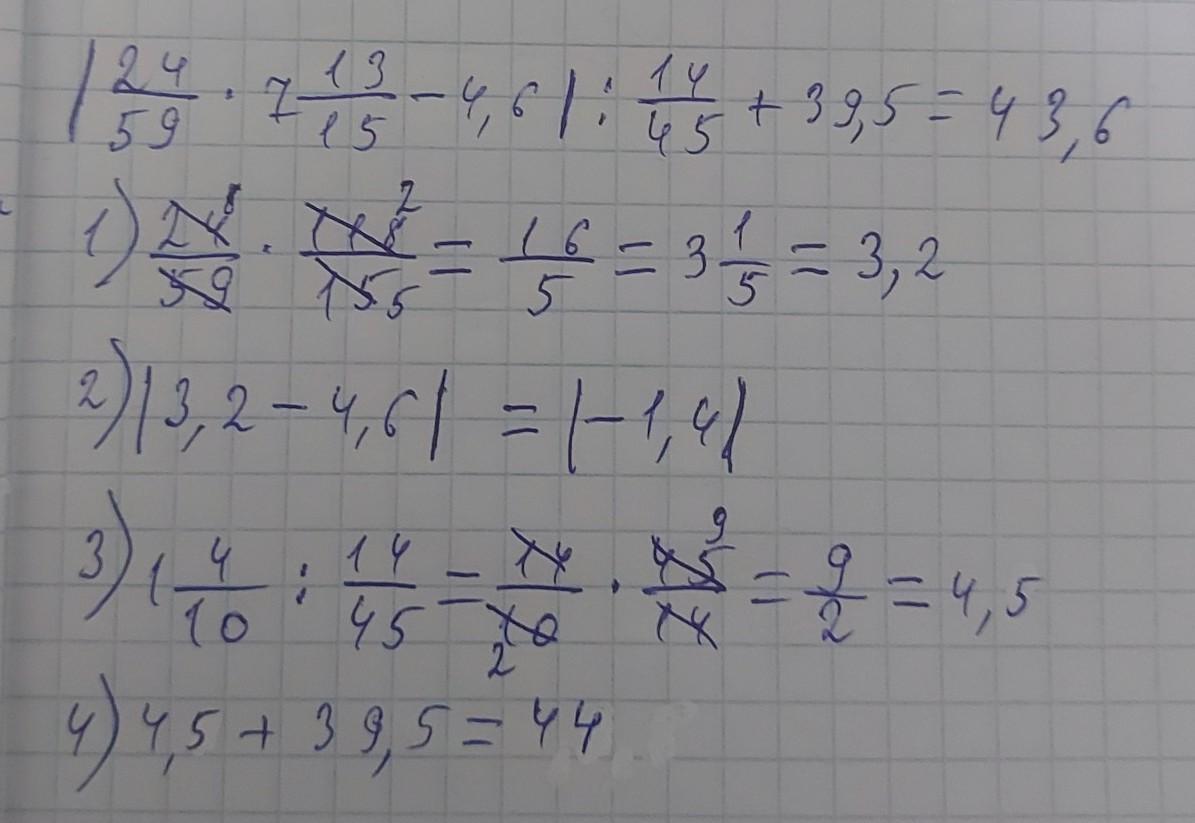 |24/59 · 7 13/15 - 4,6| : 14/45 + 39,5 = 43,6
1) 24/59 8 · 118/15 2 5 = 16/5 = 3 1/5 = 3,2
2) |3,2 - 4,6| = |-1,4|
3) 1 4/10 : 14/45 = 14/10 2 · 45/14 9 = 9/2 = 4,5
4) 4,5 + 39,5 = 44